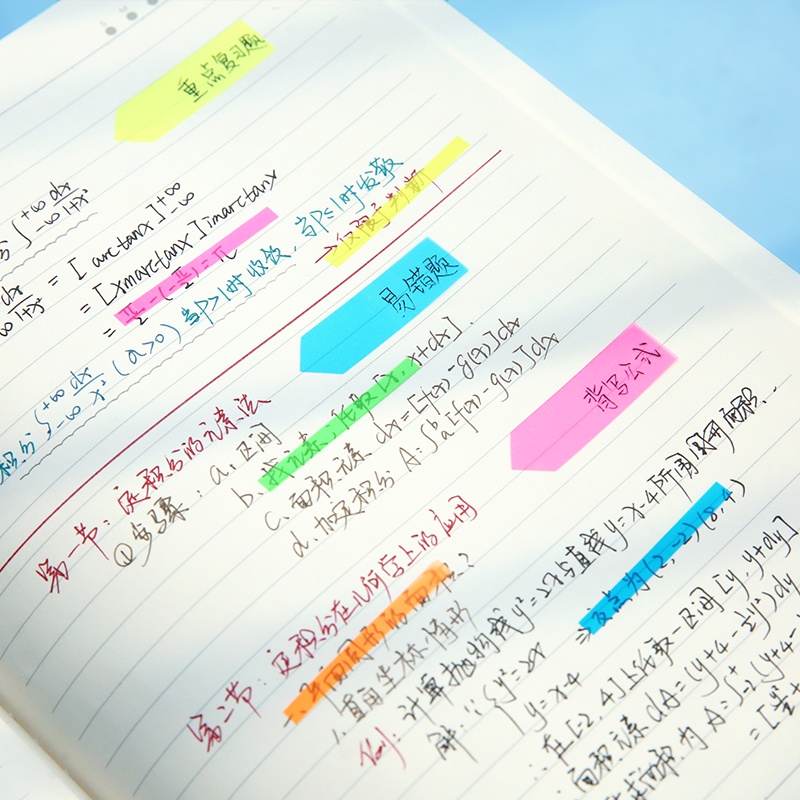 重点复习题
∫ +∞ -∞ dx/1+x²
dx/1+x² = [arctanx] +∞ -∞
= [xmarctanx] imarctanx
= π/2-(-π/2)=π
积分 ∫ +∞ -∞ dx/x² (a>0) 当P>1时收敛, 当P≤1时发散
→仅限于判断
易错题
第一节: 定积分的元素法
①步骤: a. 区间
b. 找元素, 任取[x, x+dx].
c. 面积元素 dx=[f(x)-g(x)]dx
d. 加定积分 A: ∫ba[f(x)-g(x)]dx
背写公式
第二节: 定积分在几何学上的应用
一. 平面图形的面积:
1. 直角坐标情形
例: 计算抛物线y²=2x与直线y=x-4所围图形面积.
解: ∵{y²=2x
y=x-4
⇒交点为(2,-2)(8,4)
∴在[-2,4]上任取一区间[y, y+dy]
面积元素 dA=(y+4-½y²)dy
面积为 A=∫-2(y+4-
=[y²/2+